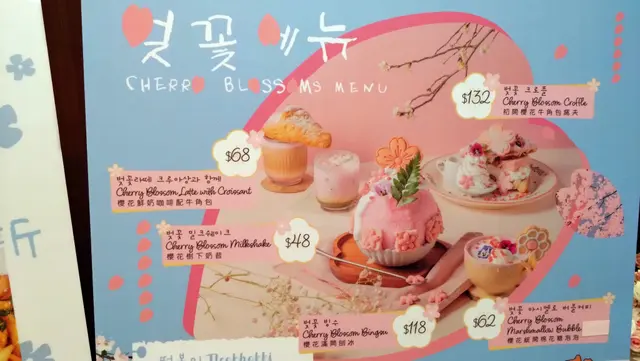 벚꽃메뉴
CHERRO BLOSSOMS MENU
$132
벚꽃 크로플
Cherry Blossom Croffle
$68
벚꽃라떼 크루아상과 함께
Cherry Blossom Latte with Croissant
櫻花鮮奶咖啡配牛角包
벚꽃 밀크쉐이크
Cherry Blossom Milkshake
櫻花樹下奶昔
$48
벚꽃 빙수
Cherry Blossom Bingsu
櫻花滿開刨冰
$118
$62
벚꽃
Cherry Blossom
Marshmallow Bubble